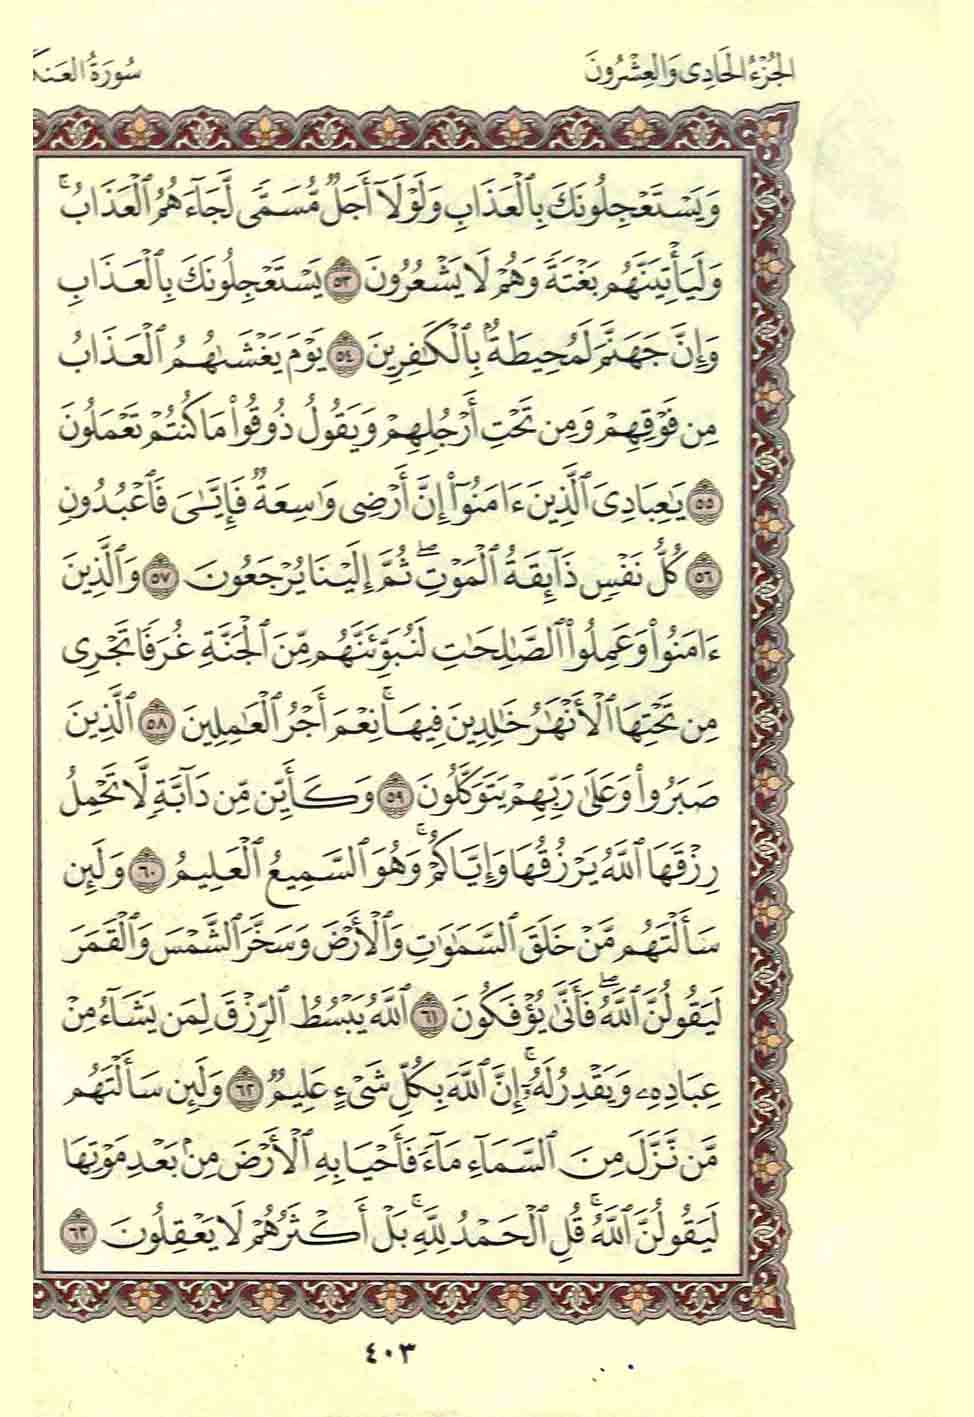 الجُزْءُ الحَادِى وَالعِشْرُونَ
سُورَةُ العَنك
وَيَسْتَعْجِلُونَكَ بِٱلْعَذَابِ وَلَوْلَآ أَجَلٌ مُّسَمًّى لَّجَآءَهُمُ ٱلْعَذَابُ ۚ
وَلَيَأْتِيَنَّهُم بَغْتَةً وَهُمْ لَا يَشْعُرُونَ ٥٣ يَسْتَعْجِلُونَكَ بِٱلْعَذَابِ
وَإِنَّ جَهَنَّمَ لَمُحِيطَةٌۢ بِٱلْكَـٰفِرِينَ ٥٤ يَوْمَ يَغْشَىٰهُمُ ٱلْعَذَابُ
مِن فَوْقِهِمْ وَمِن تَحْتِ أَرْجُلِهِمْ وَيَقُولُ ذُوقُوا۟ مَا كُنتُمْ تَعْمَلُونَ
٥٥ يَـٰعِبَادِىَ ٱلَّذِينَ ءَامَنُوٓا۟ إِنَّ أَرْضِى وَٰسِعَةٌ فَإِيَّـٰىَ فَٱعْبُدُونِ
٥٦ كُلُّ نَفْسٍ ذَآئِقَةُ ٱلْمَوْتِ ۖ ثُمَّ إِلَيْنَا يُرْجَعُونَ ٥٧ وَٱلَّذِينَ
ءَامَنُوا۟ وَعَمِلُوا۟ ٱلصَّـٰلِحَـٰتِ لَنُبَوِّئَنَّهُم مِّنَ ٱلْجَنَّةِ غُرَفًا تَجْرِى
مِن تَحْتِهَا ٱلْأَنْهَـٰرُ خَـٰلِدِينَ فِيهَا ۚ نِعْمَ أَجْرُ ٱلْعَـٰمِلِينَ ٥٨ ٱلَّذِينَ
صَبَرُوا۟ وَعَلَىٰ رَبِّهِمْ يَتَوَكَّلُونَ ٥٩ وَكَأَيِّن مِّن دَآبَّةٍ لَّا تَحْمِلُ
رِزْقَهَا ٱللَّهُ يَرْزُقُهَا وَإِيَّاكُمْ ۚ وَهُوَ ٱلسَّمِيعُ ٱلْعَلِيمُ ٦٠ وَلَئِن
سَأَلْتَهُم مَّنْ خَلَقَ ٱلسَّمَـٰوَٰتِ وَٱلْأَرْضَ وَسَخَّرَ ٱلشَّمْسَ وَٱلْقَمَرَ
لَيَقُولُنَّ ٱللَّهُ ۖ فَأَنَّىٰ يُؤْفَكُونَ ٦١ ٱللَّهُ يَبْسُطُ ٱلرِّزْقَ لِمَن يَشَآءُ مِنْ
عِبَادِهِۦ وَيَقْدِرُ لَهُۥٓ ۚ إِنَّ ٱللَّهَ بِكُلِّ شَىْءٍ عَلِيمٌ ٦٢ وَلَئِن سَأَلْتَهُم
مَّن نَّزَّلَ مِنَ ٱلسَّمَآءِ مَآءً فَأَحْيَا بِهِ ٱلْأَرْضَ مِنۢ بَعْدِ مَوْتِهَا
لَيَقُولُنَّ ٱللَّهُ ۚ قُلِ ٱلْحَمْدُ لِلَّهِ ۚ بَلْ أَكْثَرُهُمْ لَا يَعْقِلُونَ ٦٣
٤٠٣